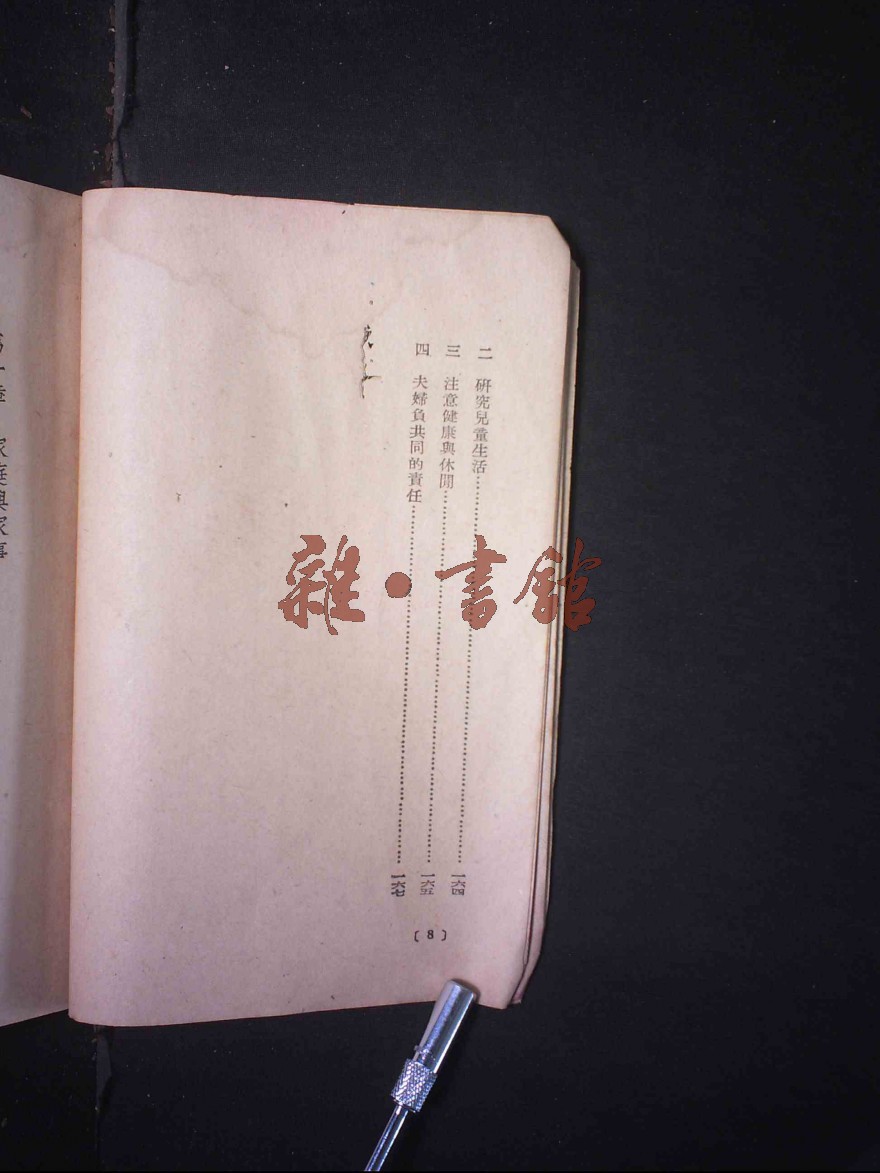 二　研究兒童生活……………………一六四
三　注意健康與休閒……………………一六五
四　夫婦負共同的責任……………………一六七
〔8〕
家庭與家事
雜·書館